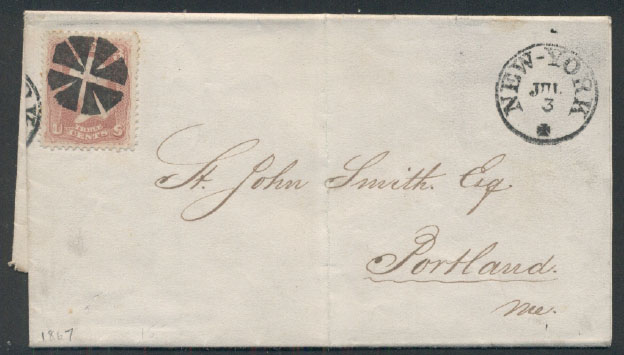 NEW-YORK
JUL
3
U S
THREE
CENTS
St. John Smith. Esq.
Portland.
Me.
1867